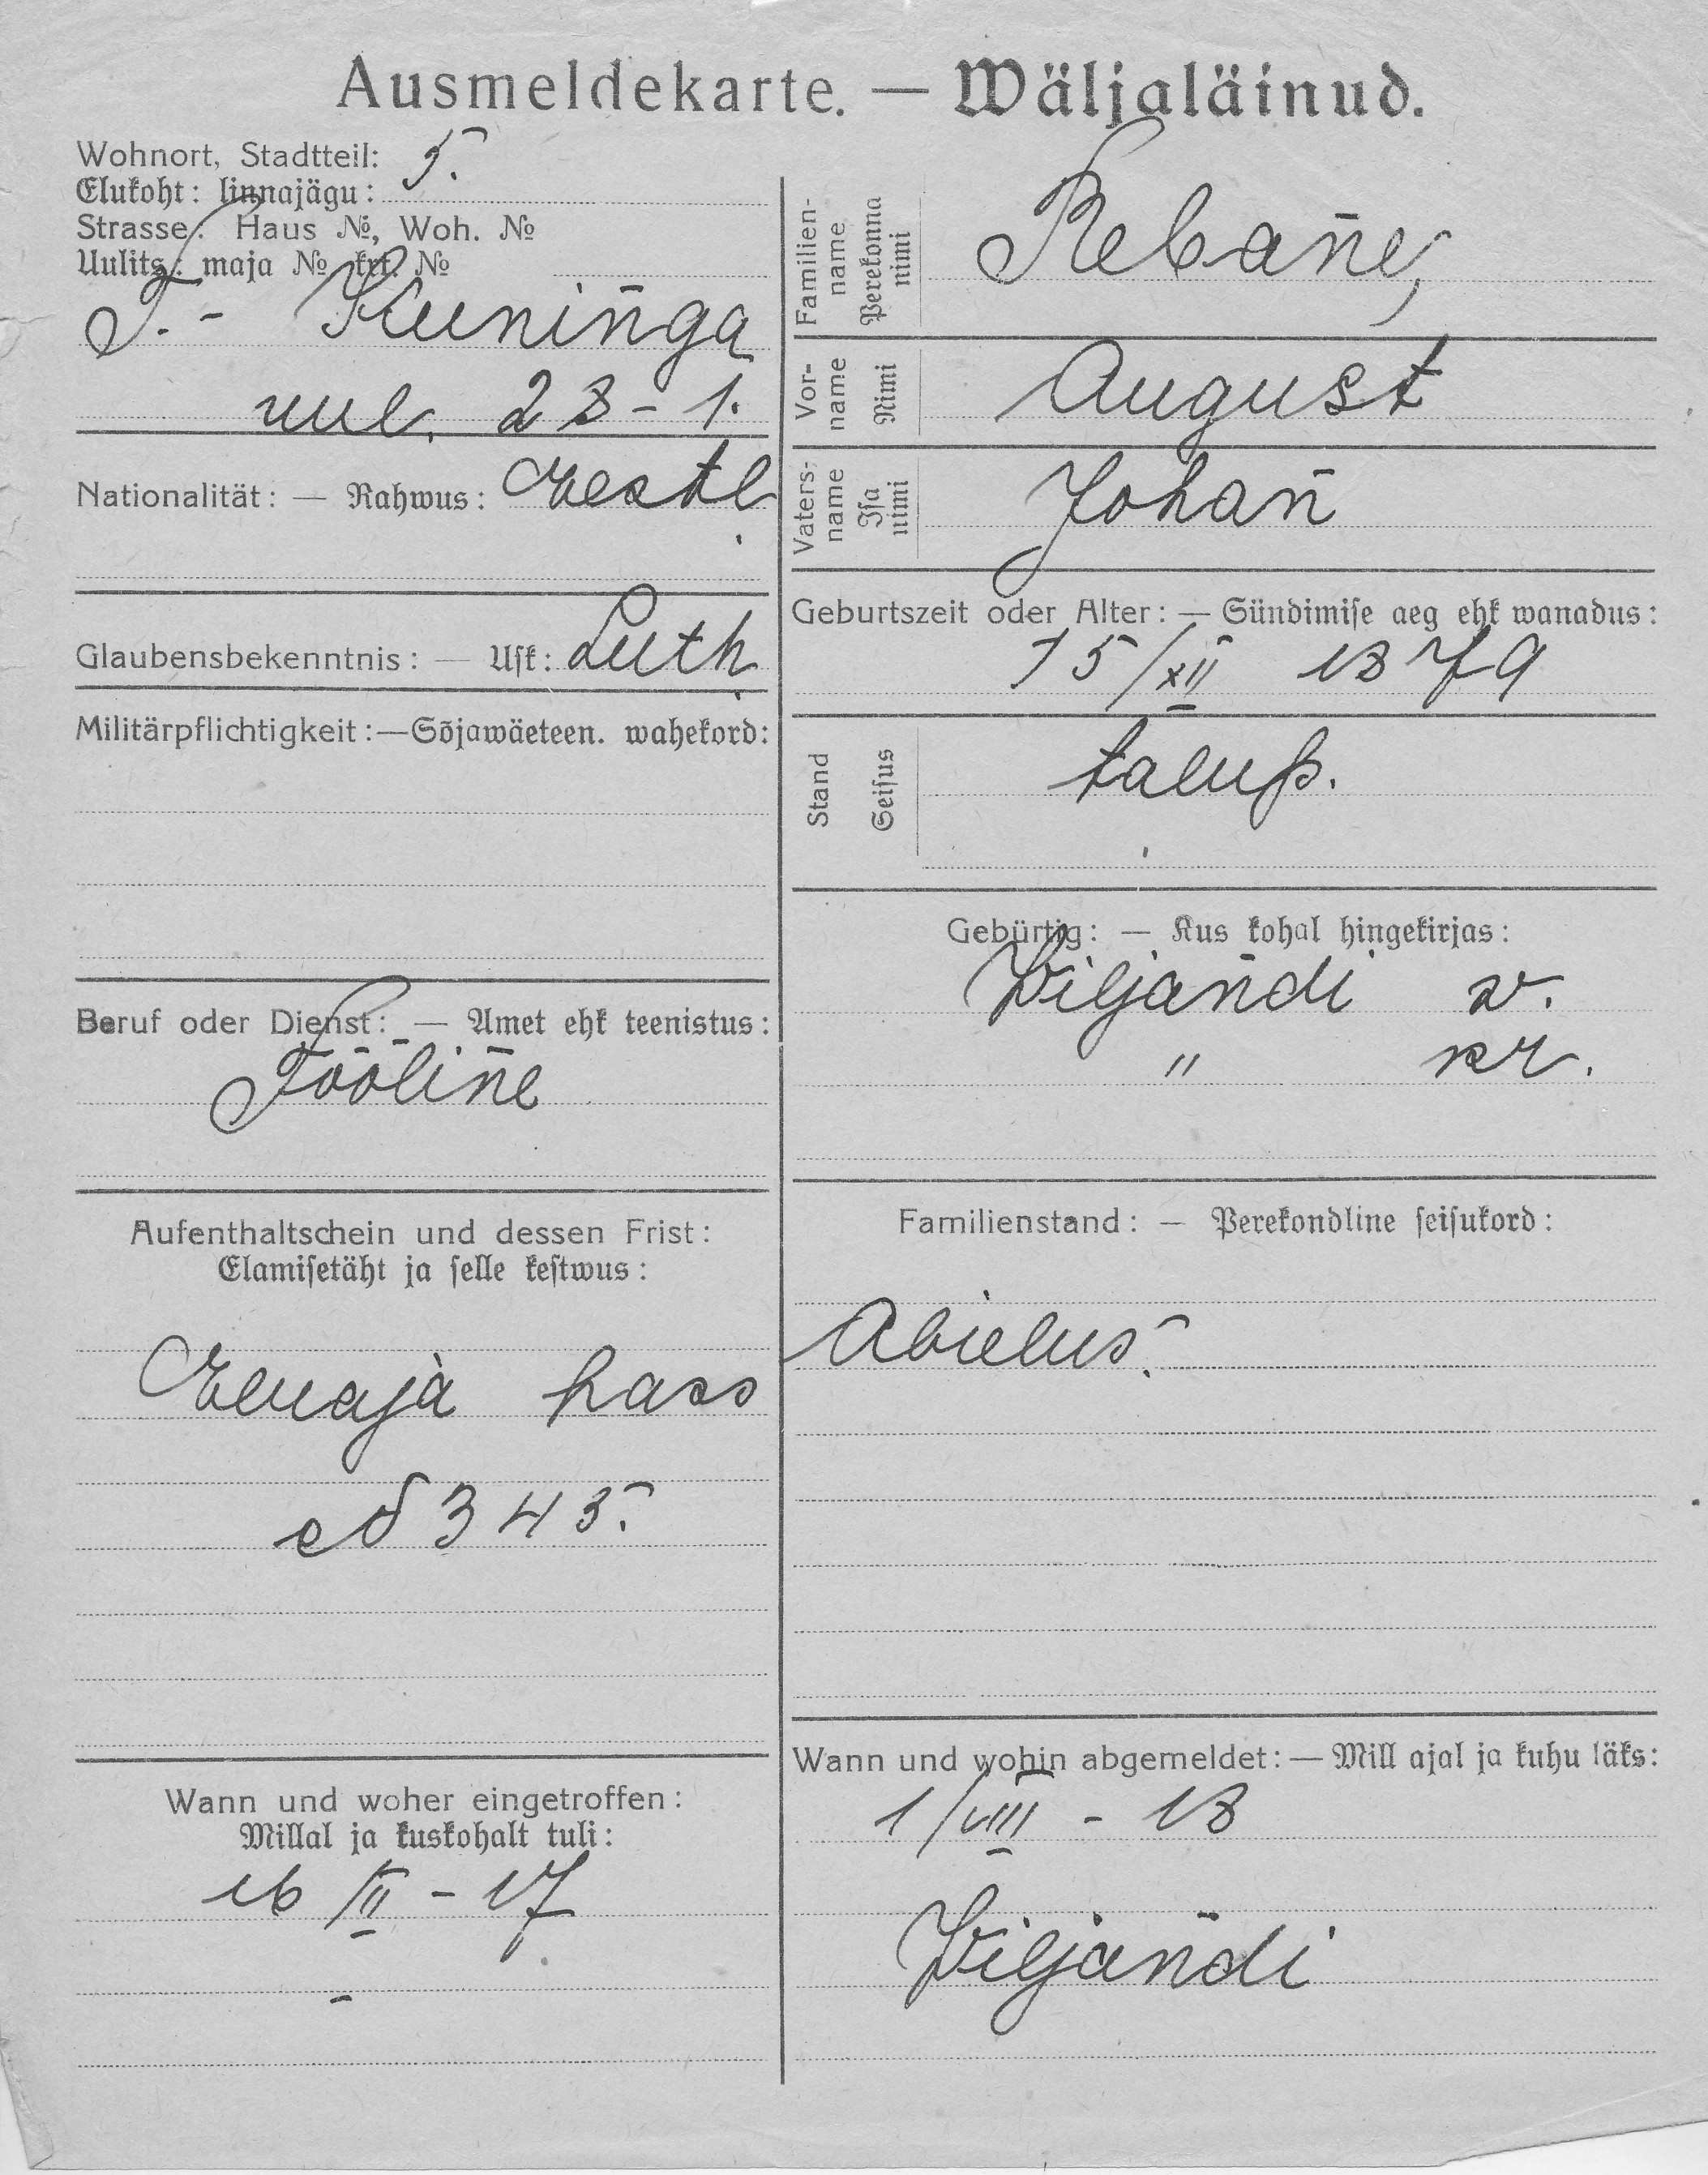 Ausmeldekarte. — Wäljaläinud.
Wohnort, Stadtteil:
Elukoht: linnajägu: 5.
Strasse: Haus №, Woh. №
Uulits: maja № krt. №
T. - Kuninga
uul. 28 - 1.
Nationalität: — Rahwus: Eestl.
Glaubensbekenntnis: — Usk: Luth.
Militärpflichtigkeit: — Sõjawäeteen. wahekord:
Beruf oder Dienst: — Amet ehk teenistus:
Tööline
Aufenthaltschein und dessen Frist:
Elamisetäht ja selle kestwus:
Elluaja pass
№ 343.
Wann und woher eingetroffen:
Millal ja kuskohalt tuli:
16/III - 17
Familien-name Perekonna nimi
Rebane,
Vor-name Nimi
August
Vaters-name Isa nimi
Johan
Geburtszeit oder Alter: — Sündimise aeg ehk wanadus:
15/XII 1879
Stand Seisus
talup.
Gebürtig: — Kus kohal hingekirjas:
Wiljandi w.
" kr.
Familienstand: — Perekondline seisukord:
Abielus.
Wann und wohin abgemeldet: — Mill ajal ja kuhu läks:
1/VIII - 18
Wiljandi